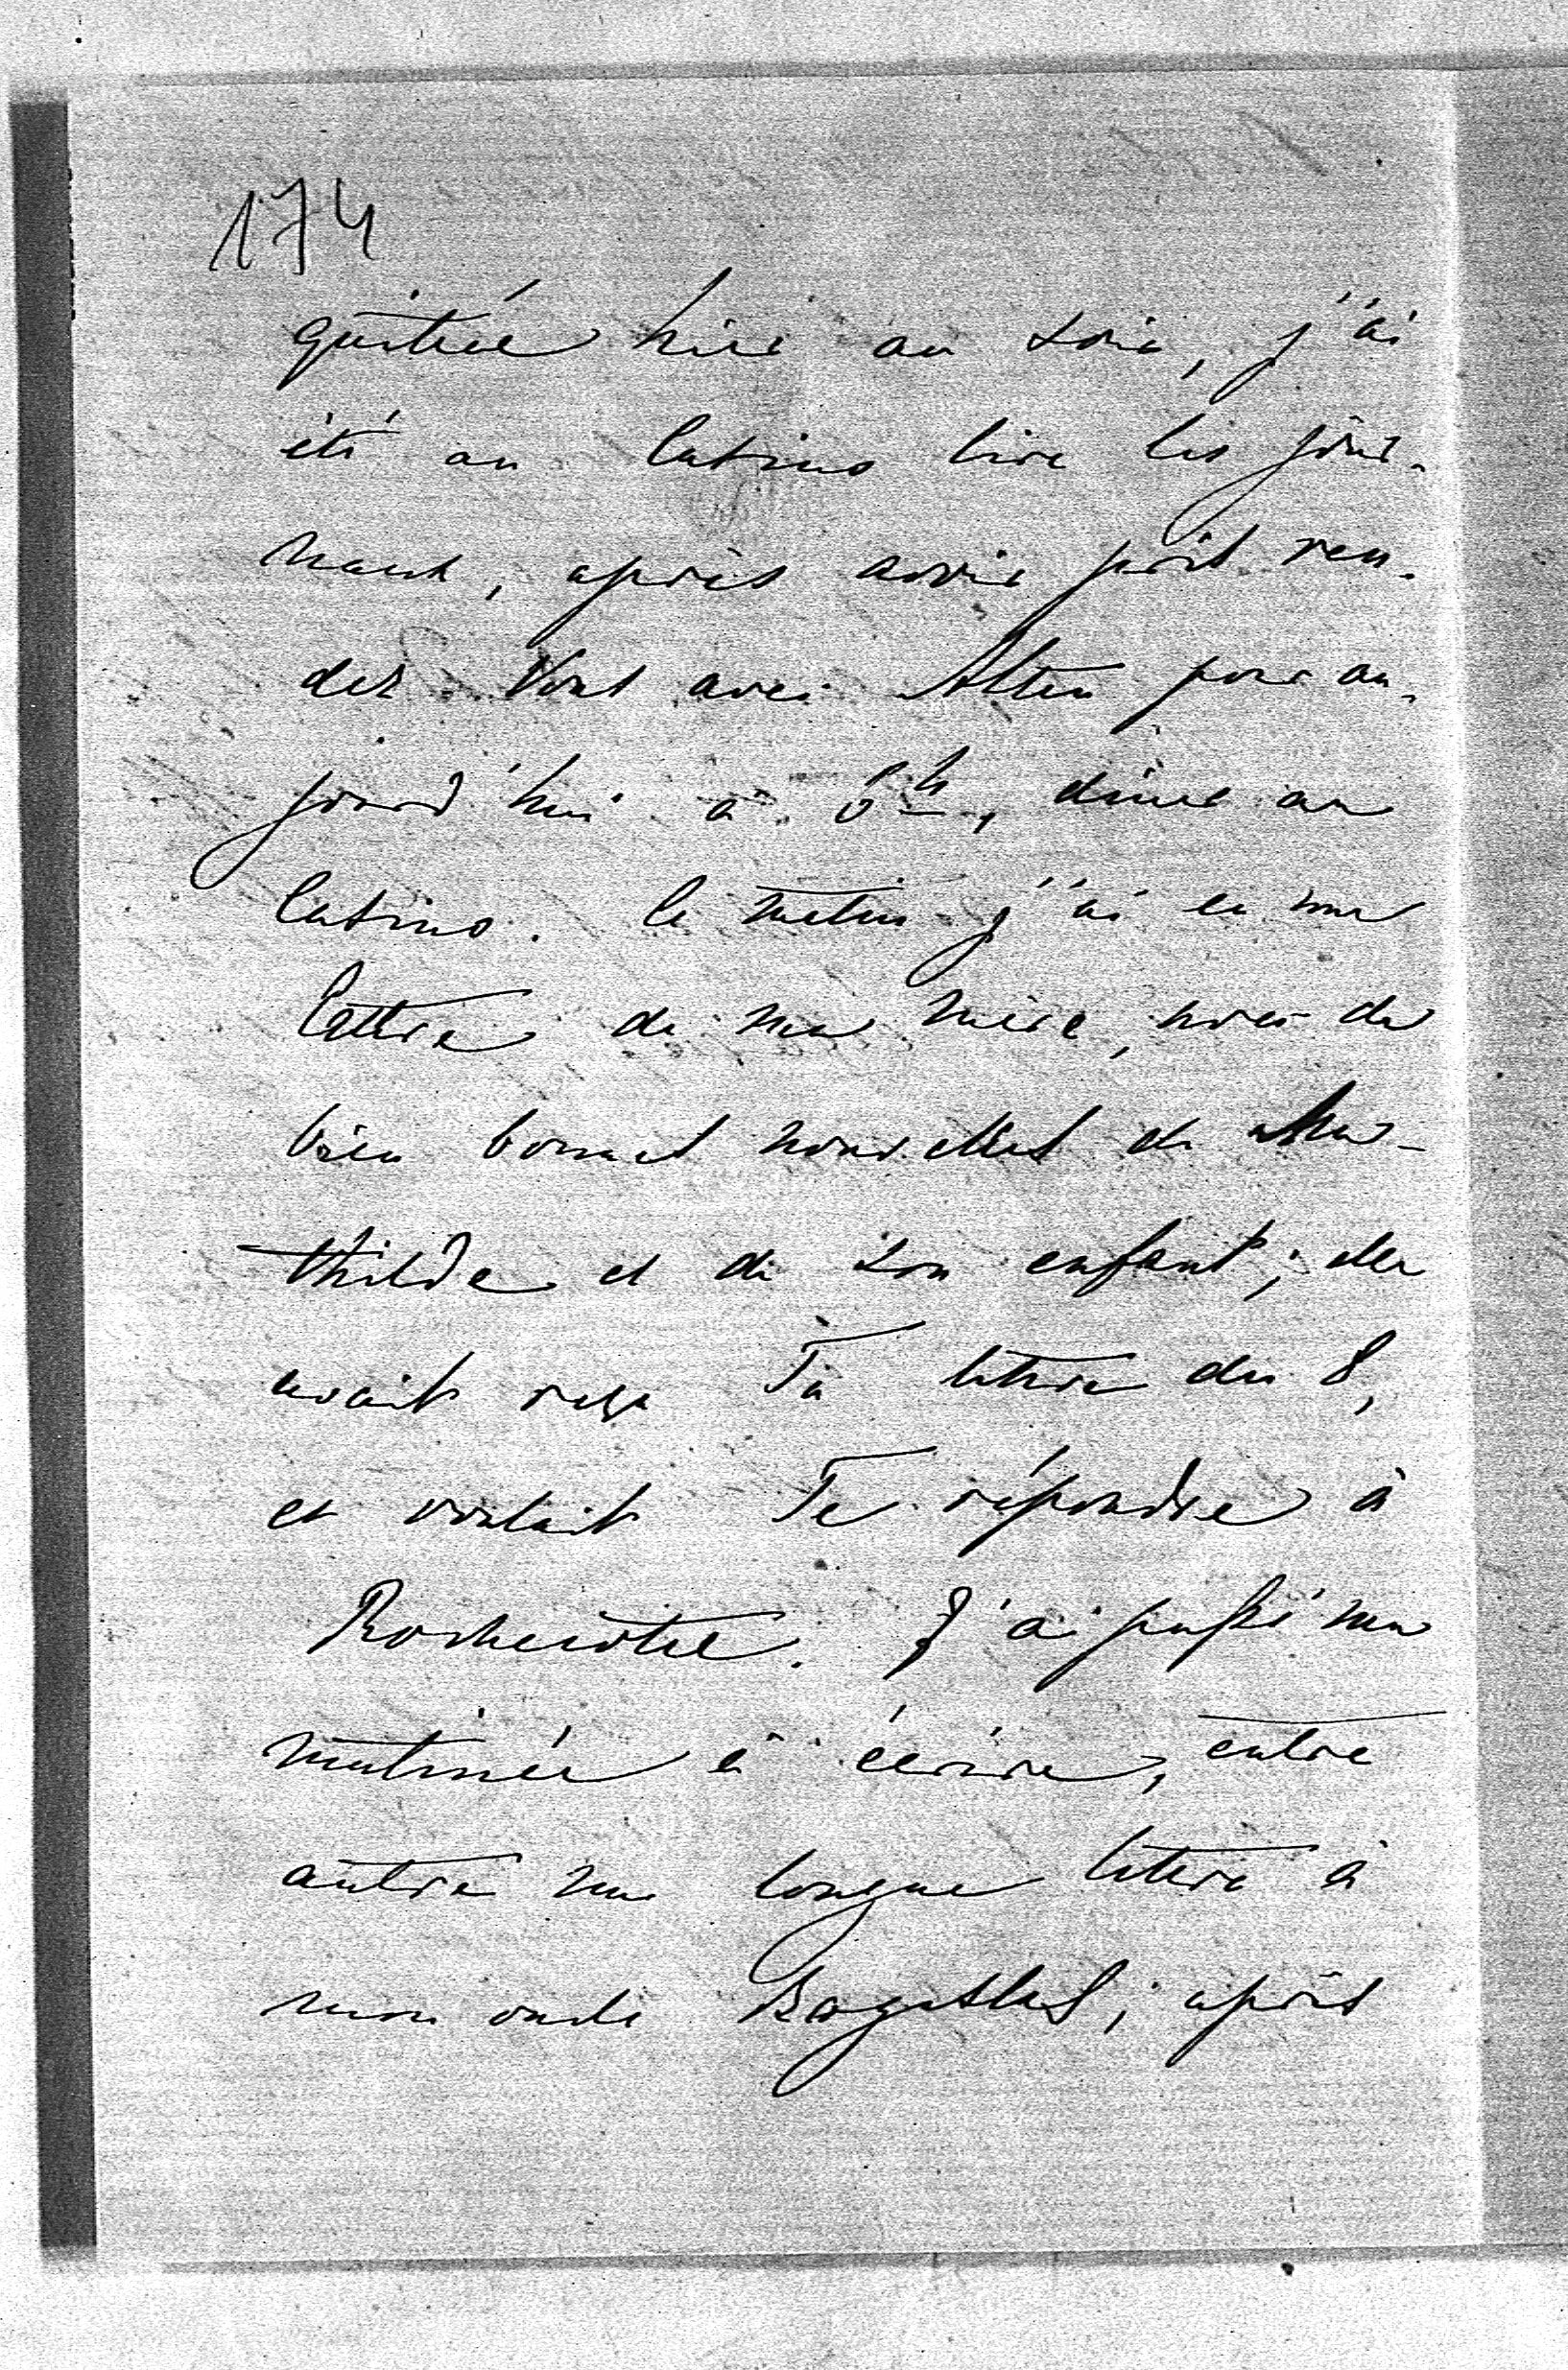 174
quittée hier au soir, j'ai
été au Casino lire les jour-
naux, après avoir prit ren-
dez-Vous avec Alten pour au-
jourd'hui à 6h, diner au
Casino. Ce matin j'ai eu une
lettre de ma mère, avec de
bien bonnes nouvelles de Ma-
thilde et de son enfant; elle
avait reçu Ta lettre du 8,
et voulait Te répondre à
Rochecotte. J'ai passé ma
matinée à écrire, entre
autre une longue lettre à
mon oncle ; après